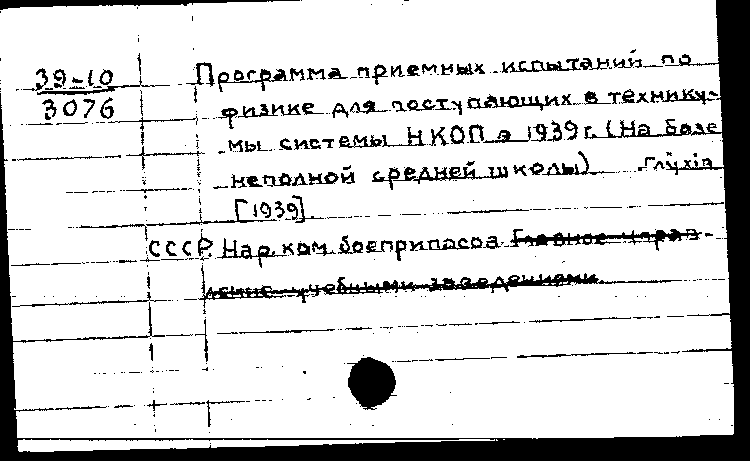 39-10
3076
Программа приемных испытаний по
физике для поступающих в технику-
мы системы НКОП в 1939 г. (На базе
неполной средней школы) Глухiв
[1939].
СССР. Нар. ком. боеприпасов. Главное управ-
ление учебными заведениями.